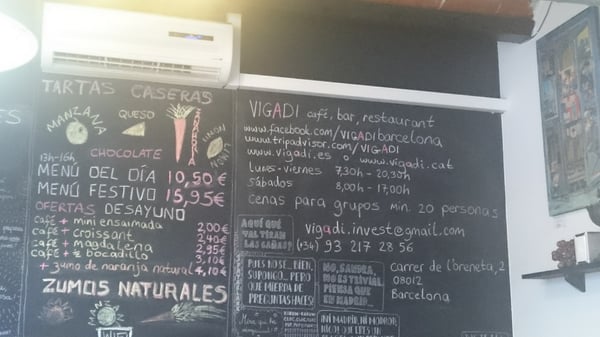 TARTAS CASERAS
MANZANA
QUESO
ZANAHORIA
LIMON
LIMON
CHOCOLATE
13h-16h
MENÚ DEL DÍA 10,50 €
MENÚ FESTIVO 15,95€
OFERTAS DESAYUNO
café + mini ensaimada 2,00€
café + croissant 2,40€
café + magdalena 2,95€
café + ½ bocadillo 3,10€
+ zumo de naranja natural 4,10€
ZUMOS NATURALES
VIGADI café, bar, restaurant
www.facebook.com/VIGADIbarcelona
www.tripadvisor.com/VIGADI
www.vigadi.es o www.vigadi.cat
lunes-viernes 7,30h - 20,30h
Sábados 8,00h - 17,00h
Cenas para grupos Min. 20 personas
vigadi.invest@gmail.com
(+34) 93 217 28 56
carrer de l'oreneta, 2
08012
Barcelona
AQUÍ QUE
TAL TIRAN
LAS CAÑAS?
PUES NOSE... BIEN,
SUPONGO... PERO
QUE MIERDA DE
PREGUNTAS HACES!
NO, SANDRA,
NO ES TRIVIAL.
PIENSA QUE
EN MADRID...
¡NI MADRID, NI MODRID,